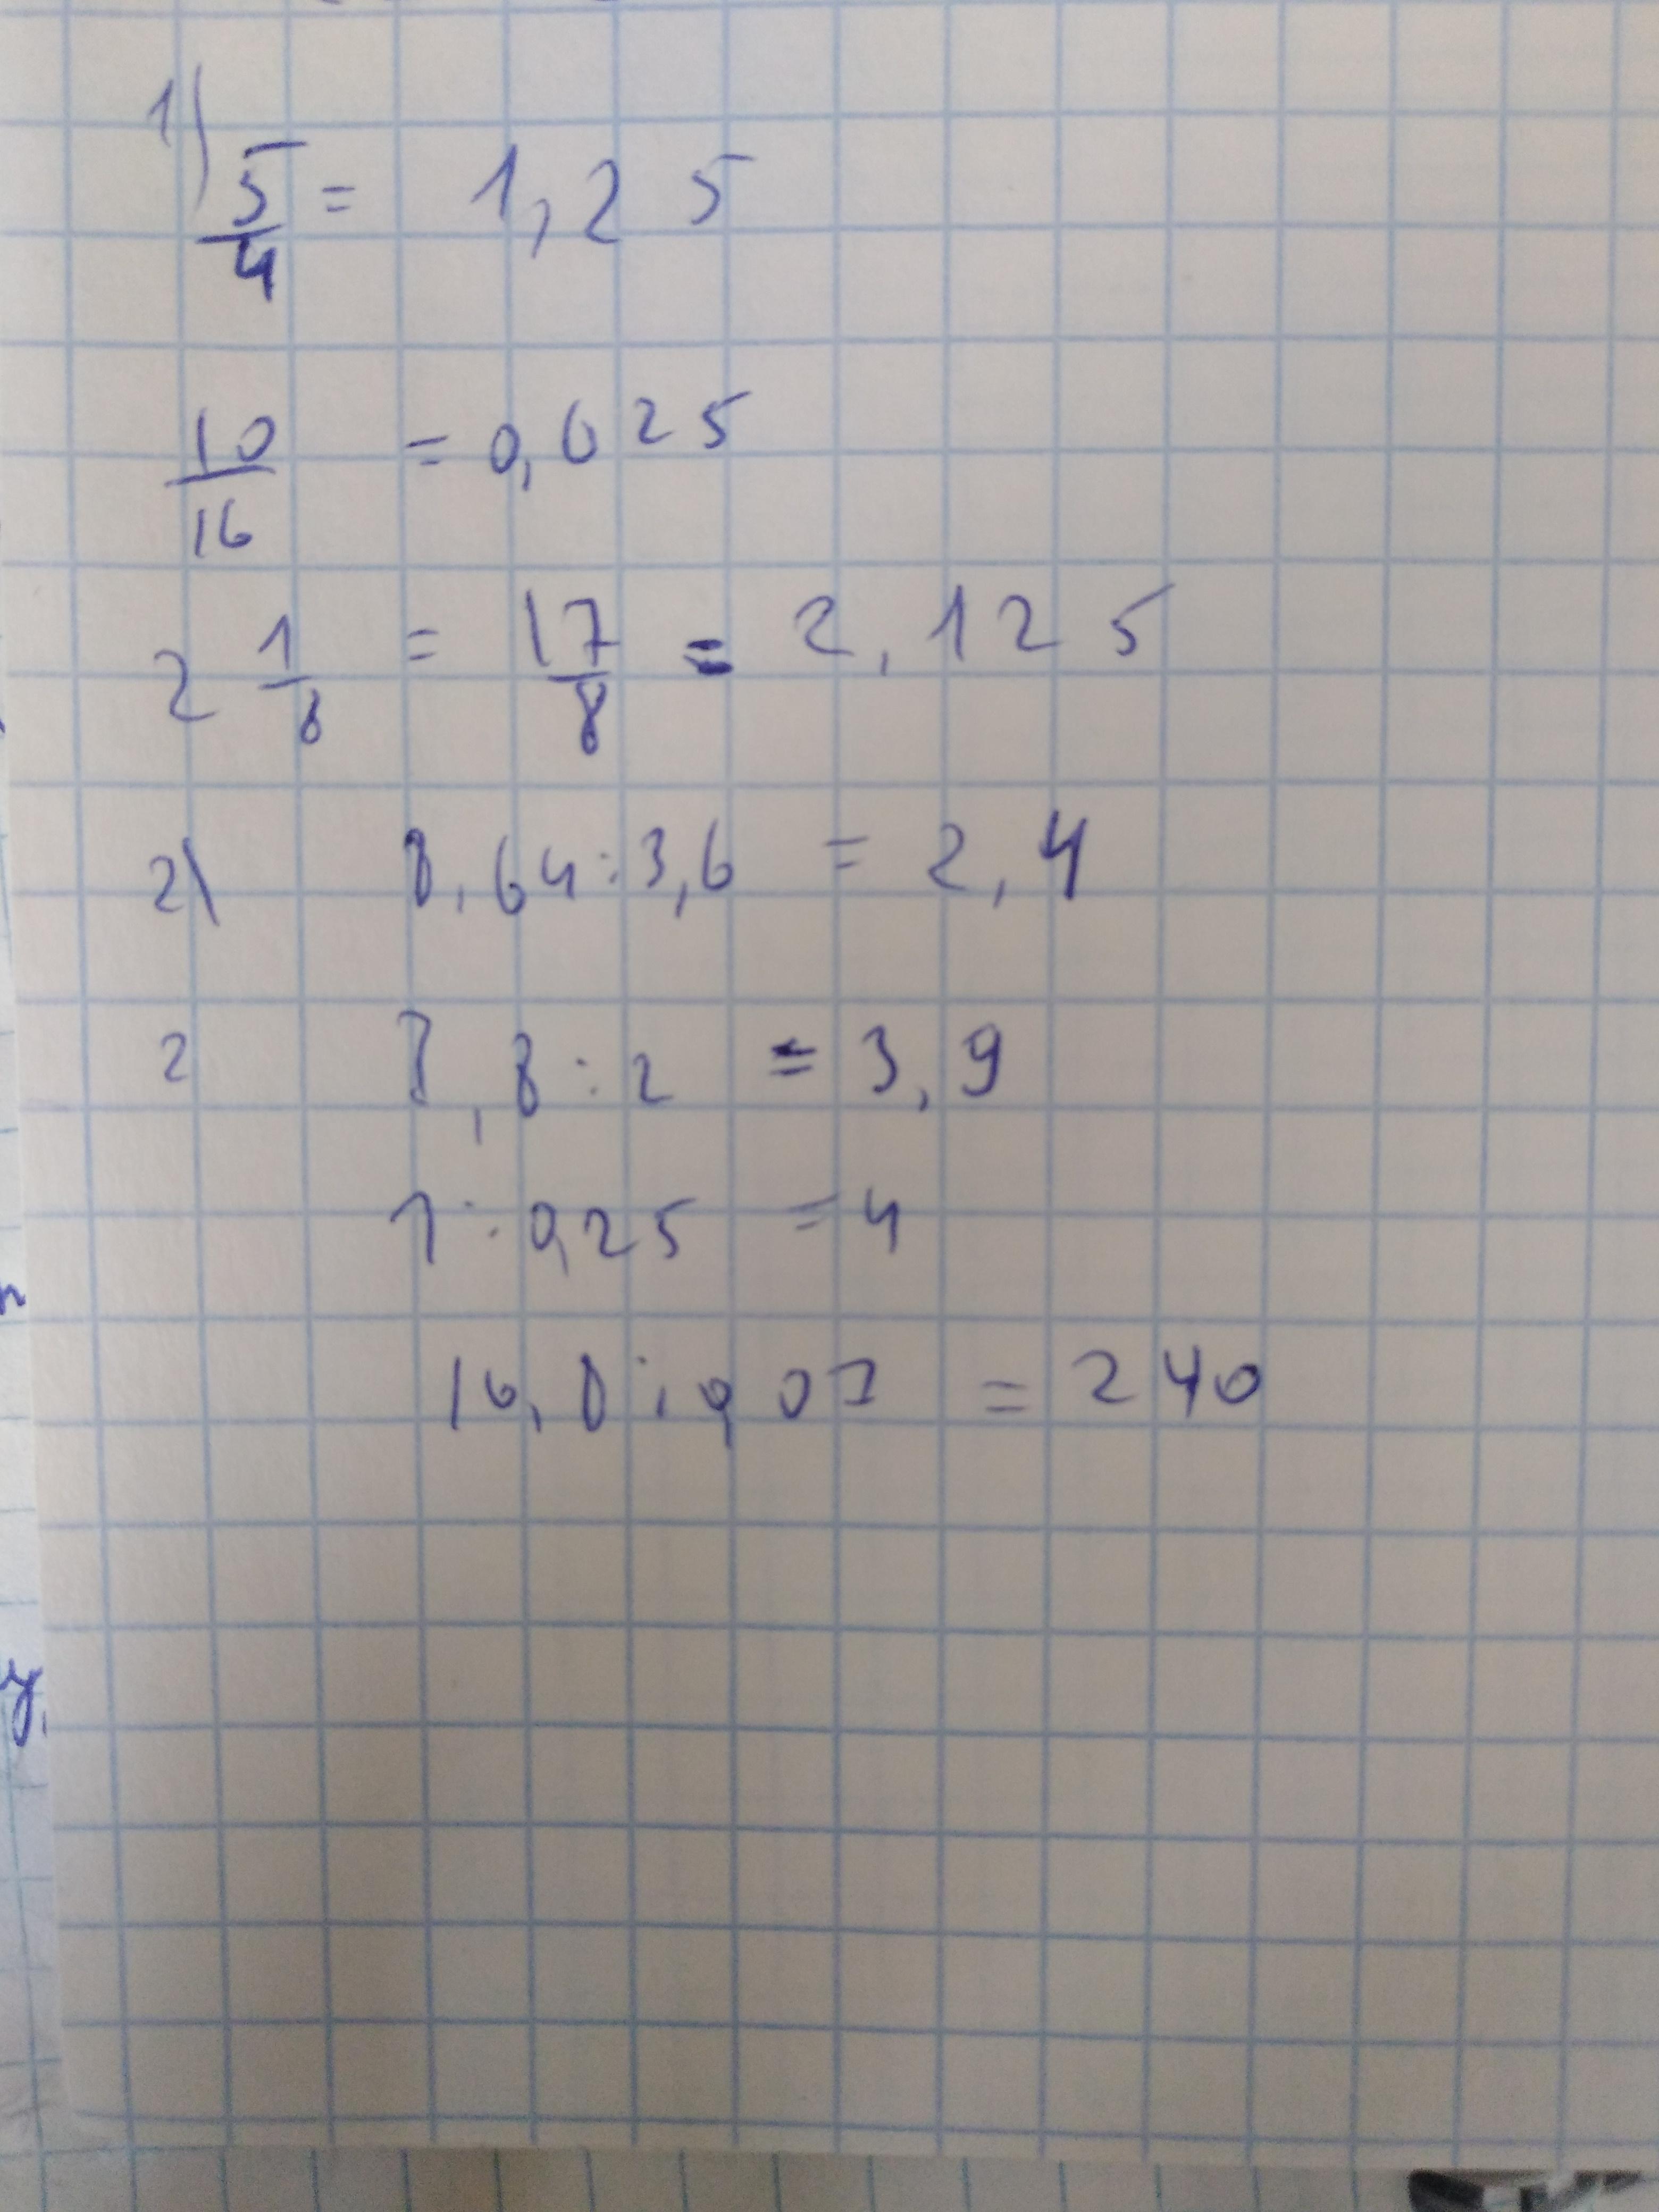 1)
5/4 = 1,25
10/16 = 0,625
2 1/8 = 17/8 = 2,125
2) 8,64:3,6 = 2,4
2 7,8:2 = 3,9
1:0,25 = 4
16,8:0,07 = 240